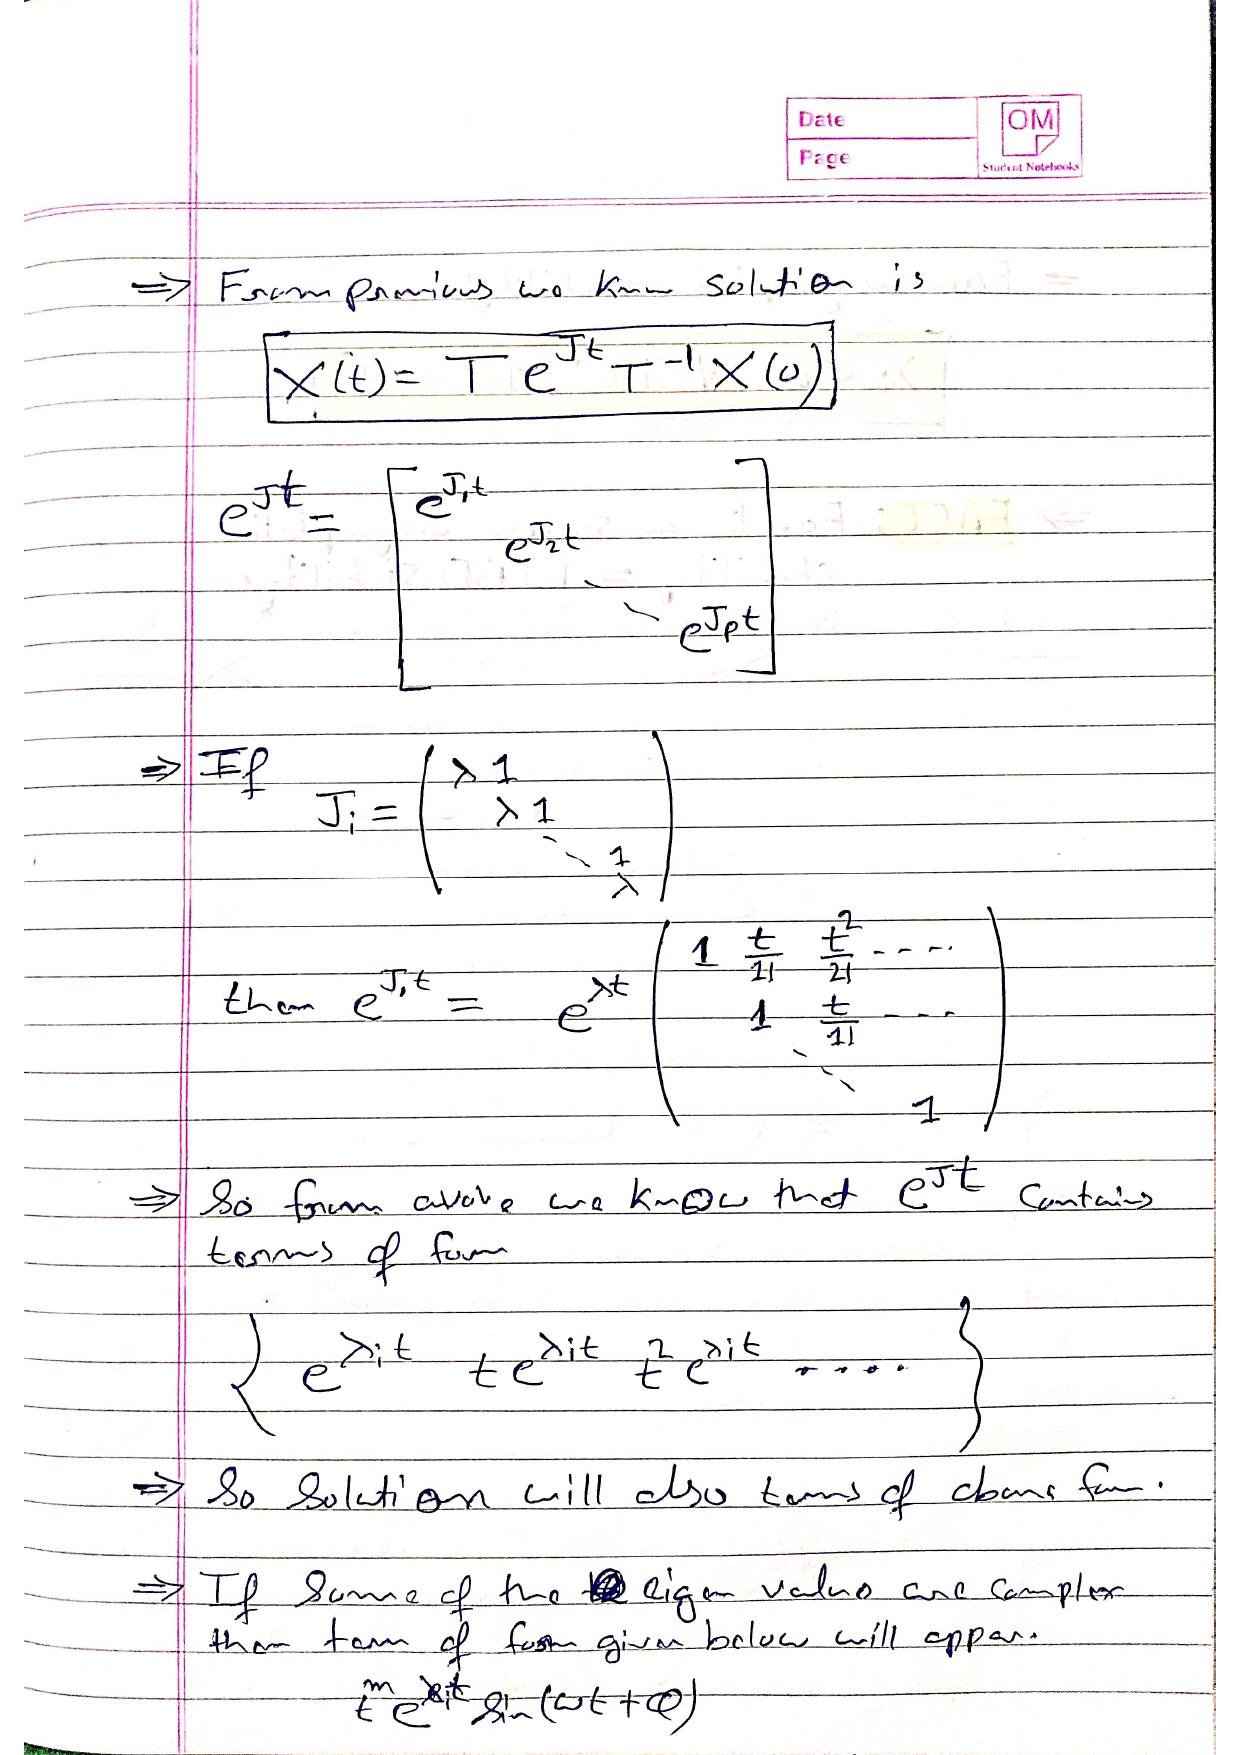 Date
Page
OM
Student Notebooks
⇒ From previous we know solution is
X(t) = T e^{Jt} T^{-1} X(0)
e^{Jt} = [ e^{J_1 t}
e^{J_2 t}
e^{J_p t} ]
⇒ If
J_i = ( λ 1
λ 1
1
λ )
then e^{J_i t} = e^{λt} ( 1 t/1! t^2/2! ----
1 t/1! ---
1 )
⇒ So from above we know that e^{Jt} contains
terms of form
{ e^{λ_i t} t e^{λ_i t} t^2 e^{λ_i t} .... }
⇒ So solution will also terms of above form.
⇒ If some of the eigen values are complex
then term of form given below will appear.
t^m e^{ t} sin(ωt + Φ)